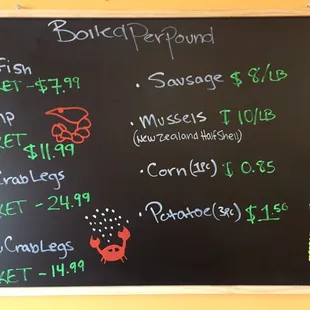 Boiled Per Pound
Fish
KET - $7.99
mp
KET
$11.99
Crab Legs
KET - 24.99
Crab Legs
KET - 14.99
• Sausage $8/LB
• Mussels $10/LB
(New Zealand Half Shell)
• Corn (1pc) $0.85
• Potatoe (3pc) $1.50